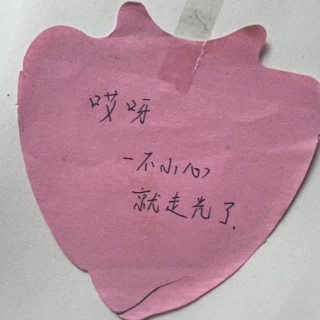 哎呀
一不小心
就走光了.